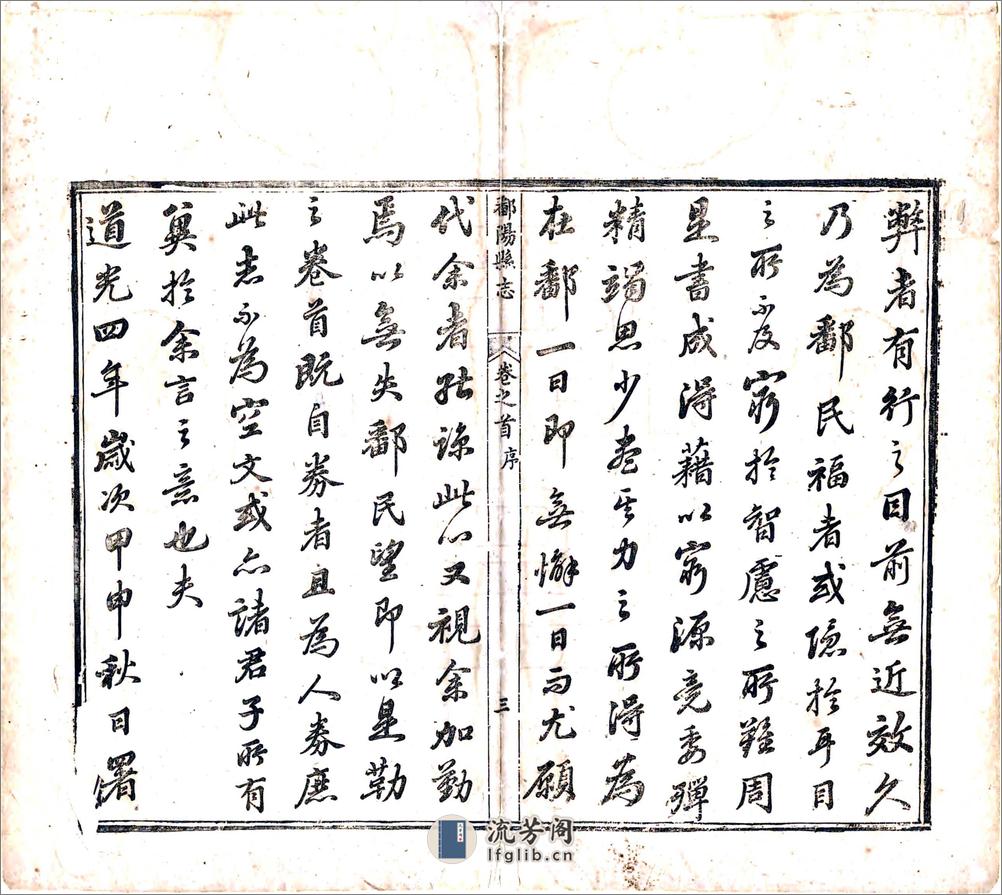 弊者有行之目前無近效久
乃為鄱民福者或隱於耳目
之所不及窮於智慮之所難周
是書成得藉以窮源竟委殫
精竭思少盡其力之所得為
在鄱一日即無懈一日而尤願
鄱陽縣志 卷之首 序 三
代余者咸諒此心又視余加勤
焉以無失鄱民望即以是勒
之卷首既自券者且為人券庶
此志不為空文或亦諸君子所有
冀於余言之意也夫
道光四年歲次甲申秋日署
流芳阁
lfglib.cn